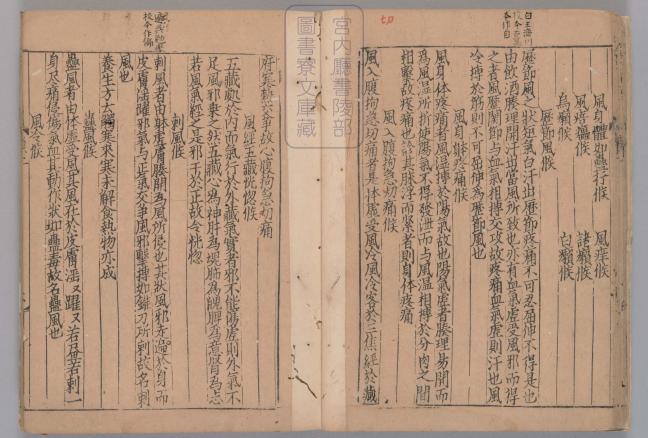 風身體如蟲行候　風痒候
風瘙癢候　諸癩候
烏癩候　白癩候
歷節風候
歷節風之狀短氣白汗出歷節疼痛不可忍屈伸不得是也
由飲酒腠理開汗出當風所致也亦有血氣虛受風邪而得
之者風歷關節與血氣相搏交攻故疼痛血氣虛則汗也風
冷搏於筋則不可屈伸爲歷節風也
風身體疼痛候
風身體疼痛者風濕搏於陽氣故也陽氣虛者腠理易開而
爲風濕所折使陽氣不得發泄而與風濕相搏於分肉之間
相擊故疼痛也診其脉浮而緊者則身體疼痛
風入腹拘急切痛候
風入腹拘急切痛者是體虛受風冷風冷客於三焦經於藏
府寒熱交爭故心腹拘急切痛
風經五藏恍惚候
五藏處於內而氣行於外藏氣實者邪不能傷虛則外氣不
足風邪乘之然五藏心爲神肝爲魂肺爲魄脾爲意腎爲志
若風氣經之是邪干於正故令恍惚
刺風候
刺風者由體虛膚腠開爲風所侵也其狀風邪走遍於身而
皮膚淫躍邪氣與正氣交爭風邪擊搏如錐刀所刺故名刺
風也
養生方云觸寒來寒未解食熱物亦成
蠱風候
蠱風者由體虛受風其風在於皮膚淫淫躍躍若畫若刺一
身盡痛侵傷氣血其動作狀如蠱毒故名蠱風也
風冷候
宮内廳書陵部
圖書寮文庫藏